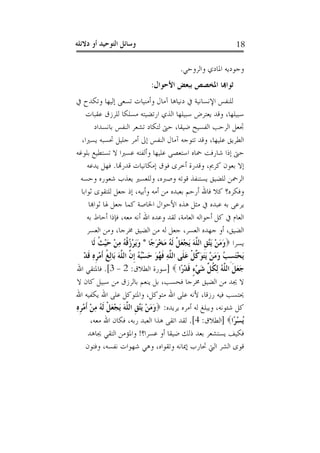 18
وسائل التوحيد أو دلائله
وجوديه المادي والروحي.
ثوابها المخصص ببعض الأحوال:
للنفس الإنسانية في دنياها آمال وأمنيات تسعى إليها وتكدح في
سبيلها، وقد يعترض سبيلها الذي ارتضيته مسلكا للرزق عقبات
تجعل الرحب الفسيح ضيقا، حتى لتكاد تشعر النفس بانسداد
الطريق عليها، وقد تتوجه آمال النفس إلى أمر جليل تحسبه يسيرا،
حتى إذا شارفت حماه استعصى عليها وألفته عسيرا لا تستطيع بلوغه
إلا بعون كريم، وقدرة أخرى فوق إمكانيات قدرتها. فهل يدعه
الرحمن للضيق يستنفد قوته وصبره، وللعسر يعذب شعوره وحسه
وفكره؟ كلا فالله أرحم بعبده من أمه وأبيه، إذ جعل للتقوى ثوابا
يرعى به عبده في مثل هذه الأحوال الخاصة كما جعل لها ثوابها
العام في كل أحواله العامة، لقد وعده الله أنه معه، فإذا أحاط به
الضيق، أو جهده العسر، جعل له من الضيق مخرجا، ومن العسر
يسرا ﴿وَمَنْ يَتَّقِ اللَّهَ يَجْعَلْ لَهُ مَخْرَجًا * وَيَرْزُقْهُ مِنْ حَيْثُ لَا
يَحْتَسِبُ وَمَنْ يَتَوَكَّلْ عَلَى اللَّهِ فَهُوَ حَسْبُهُ إِنَّ اللَّهَ بَالِغُ أَمْرِهِ قَدْ
جَعَلَ اللَّهُ لِكُلِّ شَيْءٍ قَدْرًا﴾ [سورة الطلاق: 2 – 3]. فالمتقي الله
لا يجد من الضيق مخرجا فحسب، بل ينعم بالرزق من سبيل كان لا
يحتسب فيه رزقا، لأنه على الله متوكل، والمتوكل على الله يكفيه الله
كل شئونه، ويبلغ له أمره يريده: ﴿وَمَنْ يَتَّقِ اللَّهَ يَجْعَلْ لَهُ مِنْ أَمْرِهِ
يُسْرًا﴾ [الطلاق: 4]. لقد اتقى هذا العبد ربه، فكان الله معه،
فكيف يستشعر بعد ذلك ضيقا أو عسرا؟! والمؤمن التقي يجاهد
قوى الشر التي تحارب إيمانه وتقواه، وهي شهوات نفسه، وفتون